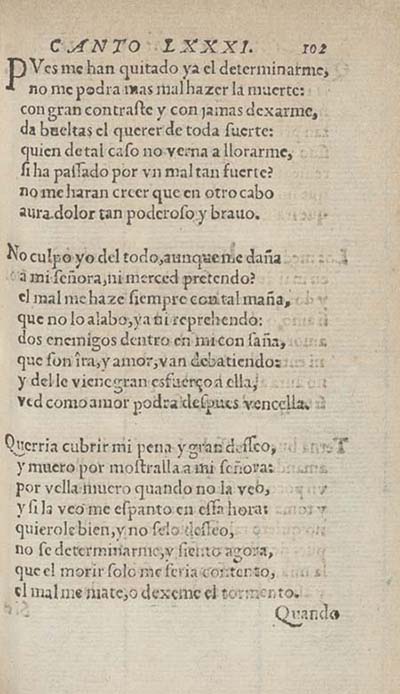 CANTO LXXXI. 102
PVes me han quitado ya el determinarme,
no me podra mas mal hazer la muerte:
con gran contraſte y con jamas dexarme,
da bueltas el querer de toda fuerte:
quien de tal caſo no verna a llorarme,
ſi ha paſſado por vn mal tan fuerte?
no me haran creer que en otro cabo
aura dolor tan poderoſo y brauo.
No culpo yo del todo, aunque me daña
a mi ſeñora, ni merced pretendo?
el mal me haze ſiempre con tal maña,
que no lo alabo, ya ñi reprehendo:
dos enemigos dentro en mi con ſaña,
que ſon îra, y amor, van debatiendo:
y del le viene gran esfuerço a ella,
ved como amor podra deſpues vencella.
Querria cubrir mi pena y gran deſſeo,
y muero por moſtralla a mi ſeñora:
por vella muero quando no la veo,
y ſi la veo me eſpanto en eſſa hora:
quierole bien, y no ſelo deſſeo,
no se determinarme, y ſiento agora,
que el morir ſolo me ſeria contento,
el mal me mate, o dexeme el tormento.
Quando